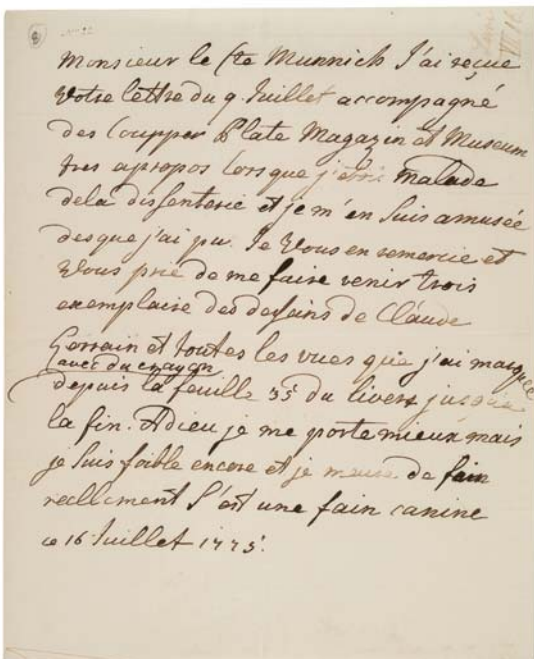 8
Monsieur le Cte Munnich J'ai reçue
Votre lettre du 9 Juillet accompagné
des Coupper Plate Magazin et Museum
tres apropos lorsque j'etois malade
dela dissenterie et je m'en suis amusée
desque j'ai pu. Je Vous en remercie et
Vous prie de me faire venir trois
exemplaire des dessains de Claude
Lorrain et toutes les vues que j'ai marquée
avec du crayon
depuis la feuille 35 du livere jusqu'a
la fin. Adieu je me porte mieux mais
je suis foible encore et je meure de faim
reellement S'est une fain canine
ce 16 Juillet 1775.